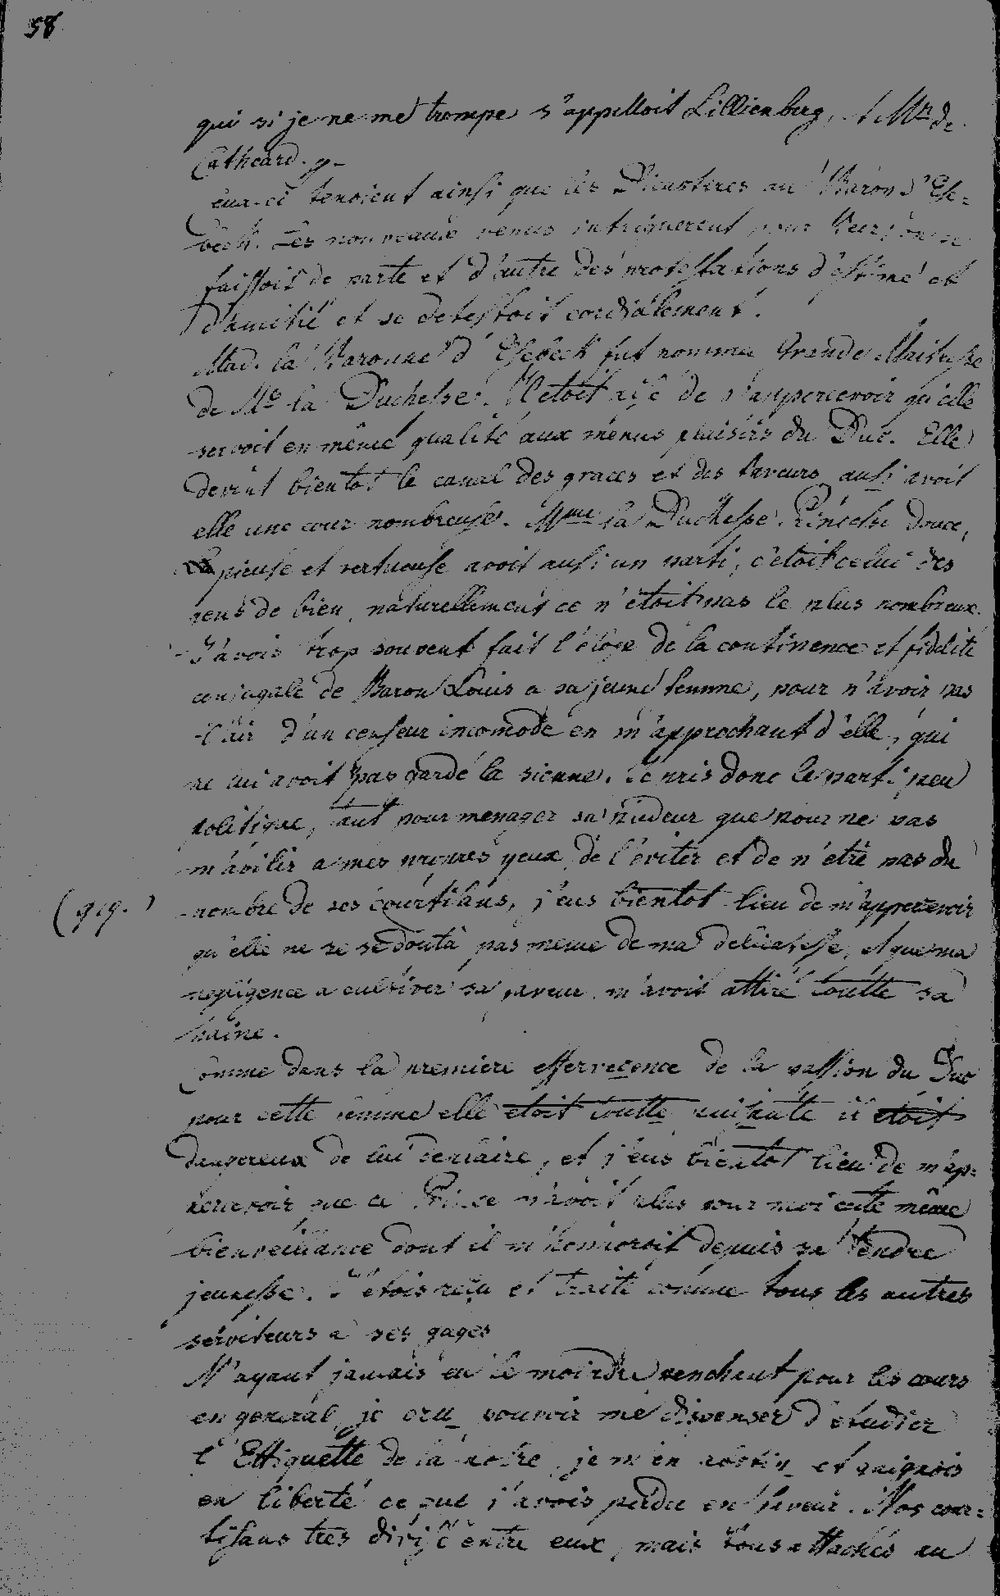 58
qui si je ne me trompe s'appelloit Lillienberg, et Mr. de
Cathcard.
Ceux-ci tenoient ainsi que les Dicasteres au Baron d'Ese-
beck. Les nouveaux venus intriguerent pour
faissoit de parte et d'autre des protestations d'estime et
d'amitié et se detestoit cordialement.
Mad. la Baronne d'Esebeck fut nommée Grande Maitresse
de Me la Duchesse. Il étoit aisé de s'appercevoir qu'elle
servoit en même qualité aux menus plaisirs du Duc. Elle
devint bientot le canal des graces et des faveurs aussi avoit
elle une cour nombreuse. Mme la Duchesse Princesse douce,
pieuse et vertueuse avoit aussi un parti, c'étoit celui des
gens de bien, naturellement ce n'étoit pas le plus nombreux.
J'avois trop souvent fait l'éloge de la continence et fidelité
conjugale de Baron Louis a sa jeune femme, pour n'avoir pas
l'air d'un censeur incomode en m'approchant d'elle, qui
ne lui avoit pas gardé la sienne. Je pris donc le parti peu
politique, tant pour menager sa pudeur que pour ne pas
m'avilir a mes propres yeux de l'éviter et de n'etre pas du
(919.)
nombre de ses courtisans, j'eus bientot lieu de m'appercevoir
qu'elle ne se douta pas meme de ma delicatesse, et que ma
negligence a cultiver sa faveur m'avoit attiré toutte sa
haine.
Comme dans la premiere effervecence de la passion du Duc
pour cette femme elle étoit toutte puissante il étoit
dangereux de lui deplaire, et j'eus bientot lieu de m'ap-
percevoir que ce Prince n'avoit plus pour moi cette même
bienveillance dont il m'honnoroit depuis sa tendre
jeunesse. J'étois reçu et traité comme tous les autres
serviteurs a ses gages
N'ayant jamais eu le moindre penchant pour les cours
en general je cru pouvoir me dispenser d'étudier
l'Ettiquette de la notre, je m'en abstin et gaignois
en liberté ce que j'avois perdu en faveur. Nos cour-
tisans tres divisé entre eux, mais tous attachés au